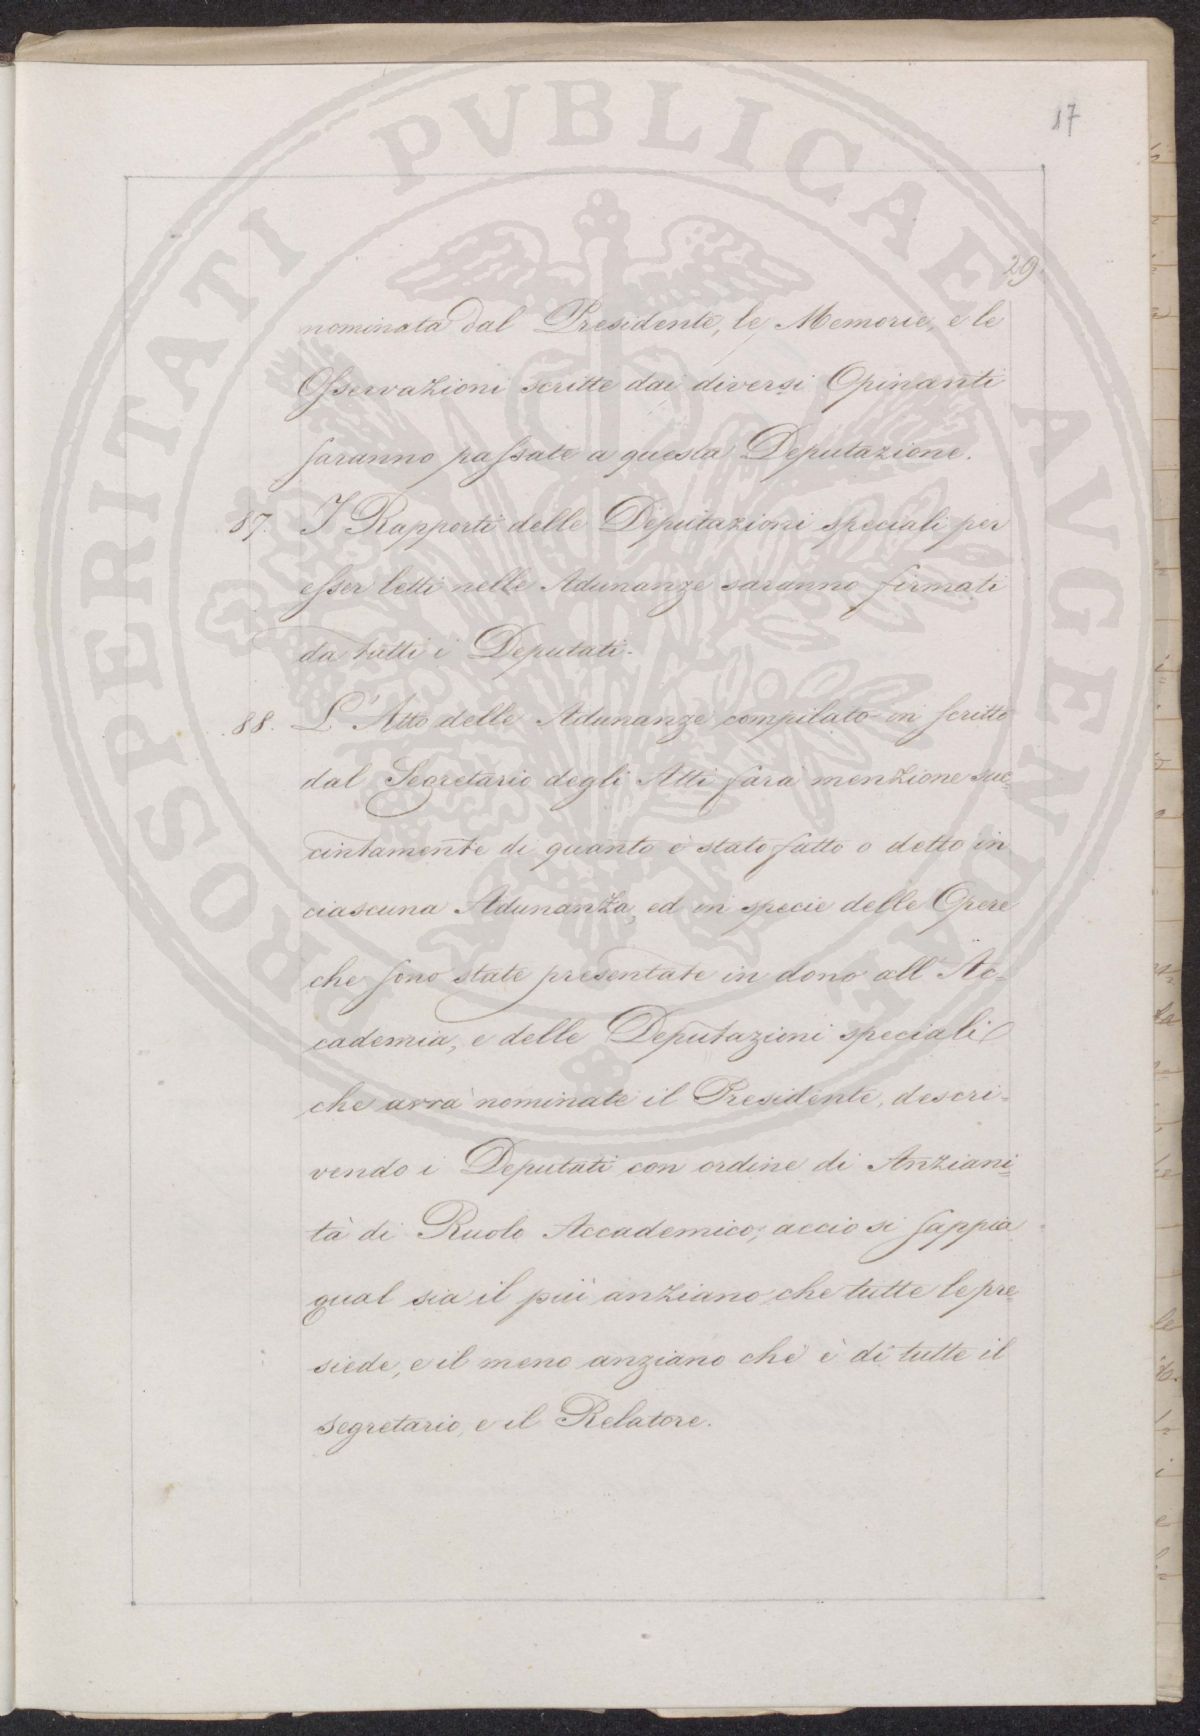 17
29.
nominata dal Presidente, le Memorie, e le
Osservazioni scritte dai diversi Opinanti
saranno passate a questa Deputazione.
87. I Rapporti delle Deputazioni speciali per
esser letti nelle Adunanze saranno firmati
da tutti i Deputati.
88. L'Atto delle Adunanze compilato in scritto
dal Segretario degli Atti farà menzione suc=
cintamente di quanto è stato fatto o detto in
ciascuna Adunanza, ed in specie delle Opere
che sono state presentate in dono all'Ac=
cademia, e delle Deputazioni speciali
che avrà nominate il Presidente, descri=
vendo i Deputati con ordine di Anziani=
tà di Ruolo Accademico; accio si sappia
qual sia il più anziano che tutte le pre=
siede, e il meno anziano che è di tutte il
segretario, e il Relatore.
PROSPERITATI PVBLICAE AVGENDAE